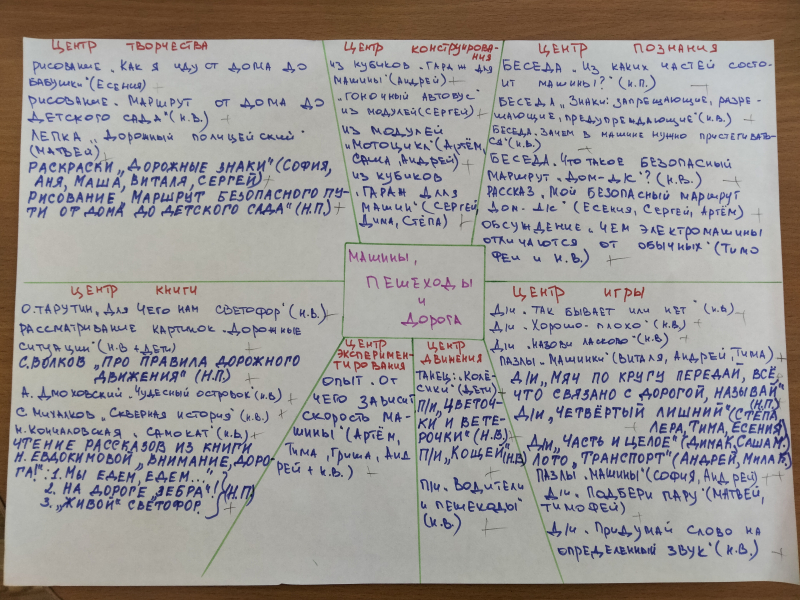 ЦЕНТР ТВОРЧЕСТВА
РИСОВАНИЕ „КАК Я ИДУ ОТ ДОМА ДО
БАБУШКИ" (ЕСЕНИЯ) +
РИСОВАНИЕ „МАРШРУТ ОТ ДОМА ДО
ДЕТСКОГО САДА" (Н.В.) +
ЛЕПКА „ДОРОЖНЫЙ ПОЛИЦЕЙСКИЙ"
(МАТВЕЙ) +
РАСКРАСКИ „ДОРОЖНЫЕ ЗНАКИ" (СОФИЯ,
АНЯ, МАША, ВИТАЛЯ, СЕРГЕЙ) +
РИСОВАНИЕ „МАРШРУТ БЕЗОПАСНОГО ПУ-
ТИ ОТ ДОМА ДО ДЕТСКОГО САДА" (Н.П.) +
ЦЕНТР КОНСТРУИРОВА-
НИЯ
ИЗ КУБИКОВ „ГАРАЖ ДЛЯ
МАШИНЫ" (АНДРЕЙ) +
„ГОНОЧНЫЙ АВТОБУС"
ИЗ МОДУЛЕЙ (СЕРГЕЙ) +
ИЗ МОДУЛЕЙ
„МОТОЦИКЛ" (АРТЁМ,
САША, АНДРЕЙ) +
ИЗ КУБИКОВ
„ГАРАЖ ДЛЯ
МАШИН" (СЕРГЕЙ,
ДИМА, СТЁПА) +
ЦЕНТР ПОЗНАНИЯ
БЕСЕДА „ИЗ КАКИХ ЧАСТЕЙ СОСТО-
ИТ МАШИНЫ?" (Н.П.) +
БЕСЕДА „ЗНАКИ: ЗАПРЕЩАЮЩИЕ, РАЗРЕ-
ШАЮЩИЕ, ПРЕДУПРЕЖДАЮЩИЕ" (Н.В.) +
БЕСЕДА „ЗАЧЕМ В МАШИНЕ НУЖНО ПРИСТЕГИВАТЬ-
СЯ" (Н.В.) +
БЕСЕДА „ЧТО ТАКОЕ БЕЗОПАСНЫЙ
МАРШРУТ „ДОМ-Д/С"? (Н.В.) +
РАССКАЗ „МОЙ БЕЗОПАСНЫЙ МАРШРУТ
ДОМ-Д/С" (ЕСЕНИЯ, СЕРГЕЙ, АРТЁМ) +
ОБСУЖДЕНИЕ „ЧЕМ ЭЛЕКТРОМАШИНЫ
ОТЛИЧАЮТСЯ ОТ ОБЫЧНЫХ" (ТИМО
ФЕЙ И Н.В.) +
МАШИНЫ,
ПЕШЕХОДЫ
И
ДОРОГА
ЦЕНТР КНИГИ
О. ТАРУТИН „ДЛЯ ЧЕГО НАМ СВЕТОФОР" (Н.В.) +
РАССМАТРИВАНИЕ КАРТИНОК „ДОРОЖНЫЕ
СИТУАЦИИ" (Н.В + ДЕТИ) +
С. ВОЛКОВ „ПРО ПРАВИЛА ДОРОЖНОГО
ДВИЖЕНИЯ" (Н.П) +
А. ДМОХОВСКИЙ „ЧУДЕСНЫЙ ОСТРОВОК" (Н.В) +
С. МИХАЛКОВ „СКВЕРНАЯ ИСТОРИЯ" (Н.В.) +
Н. КОНЧАЛОВСКАЯ „САМОКАТ" (Н.В) +
ЧТЕНИЕ РАССКАЗОВ ИЗ КНИГИ
Н. ЕВДОКИМОВОЙ „ВНИМАНИЕ, ДОРО-
ГА!": 1. МЫ ЕДЕМ, ЕДЕМ...
2. НА ДОРОГЕ „ЗЕБРА"! (Н.П)
3. „ЖИВОЙ" СВЕТОФОР +
ЦЕНТР
ЭКСПЕРИМЕН-
ТИРОВАНИЯ
ОПЫТ „ОТ
ЧЕГО ЗАВИСИТ
СКОРОСТЬ МА-
ШИНЫ" (АРТЁМ,
ТИМА, ГРИША, АНД
РЕЙ + Н.В.) +
ЦЕНТР
ДВИЖЕНИЯ
ТАНЕЦ: „КОЛЁ-
СИКИ" (ДЕТИ)
П/И „ЦВЕТОЧ-
КИ И ВЕТЕ-
РОЧКИ" (Н.В) +
П/И „КОЩЕЙ" (Н.В) +
П/И „ВОДИТЕЛИ
И ПЕШЕХОДЫ"
(Н.В.) +
ЦЕНТР ИГРЫ
Д/И „ТАК БЫВАЕТ ИЛИ НЕТ" (Н.В) +
Д/И „ХОРОШО-ПЛОХО" (Н.В) +
Д/И „НАЗОВИ ЛАСКОВО" (Н.В) +
ПАЗЛЫ „МАШИНКИ" (ВИТАЛЯ, АНДРЕЙ, ТИМА) +
Д/И „МЯЧ ПО КРУГУ ПЕРЕДАЙ, ВСЁ,
ЧТО СВЯЗАНО С ДОРОГОЙ, НАЗЫВАЙ"
(Н.П) +
Д/И „ЧЕТВЁРТЫЙ ЛИШНИЙ" (СТЁПА,
ЛЕРА, ТИМА, ЕСЕНИЯ) +
Д/И „ЧАСТЬ И ЦЕЛОЕ" (ДИМА К, САША М.) +
ЛОТО „ТРАНСПОРТ" (АНДРЕЙ, МИЛА К.) +
ПАЗЛЫ „МАШИНЫ" (СОФИЯ, АНДРЕЙ) +
Д/И „ПОДБЕРИ ПАРУ" (МАТВЕЙ,
ТИМОФЕЙ) +
Д/И „ПРИДУМАЙ СЛОВО НА
ОПРЕДЕЛЕННЫЙ ЗВУК" (Н.В.) +